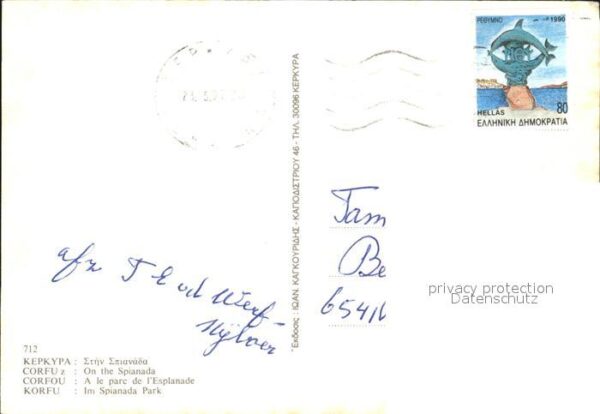 ΡΕΘΥΜΝΟ 1990
80
HELLAS
ΕΛΛΗΝΙΚΗ ΔΗΜΟΚΡΑΤΙΑ
Ἐκδοσις : ΙΩΑΝ. ΚΑΓΚΟΥΡΙΔΗΣ - ΚΑΠΟΔΙΣΤΡΙΟΥ 46 - ΤΗΛ. 30096 ΚΕΡΚΥΡΑ
Fam
Be
6541
privacy protection
Datenschutz
afz T E vd Werf-
712
ΚΕΡΚΥΡΑ : Στήν Σπιανάδα
CORFU z : On the Spianada
CORFOU : A le parc de l'Esplanade
KORFU : Im Spianada Park